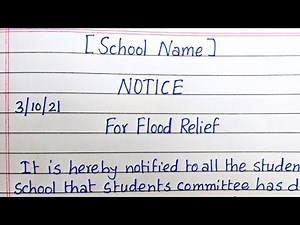 [School Name]
NOTICE
3/10/21
For Flood Relief
It is hereby notified to all the studen
school that students committee has d